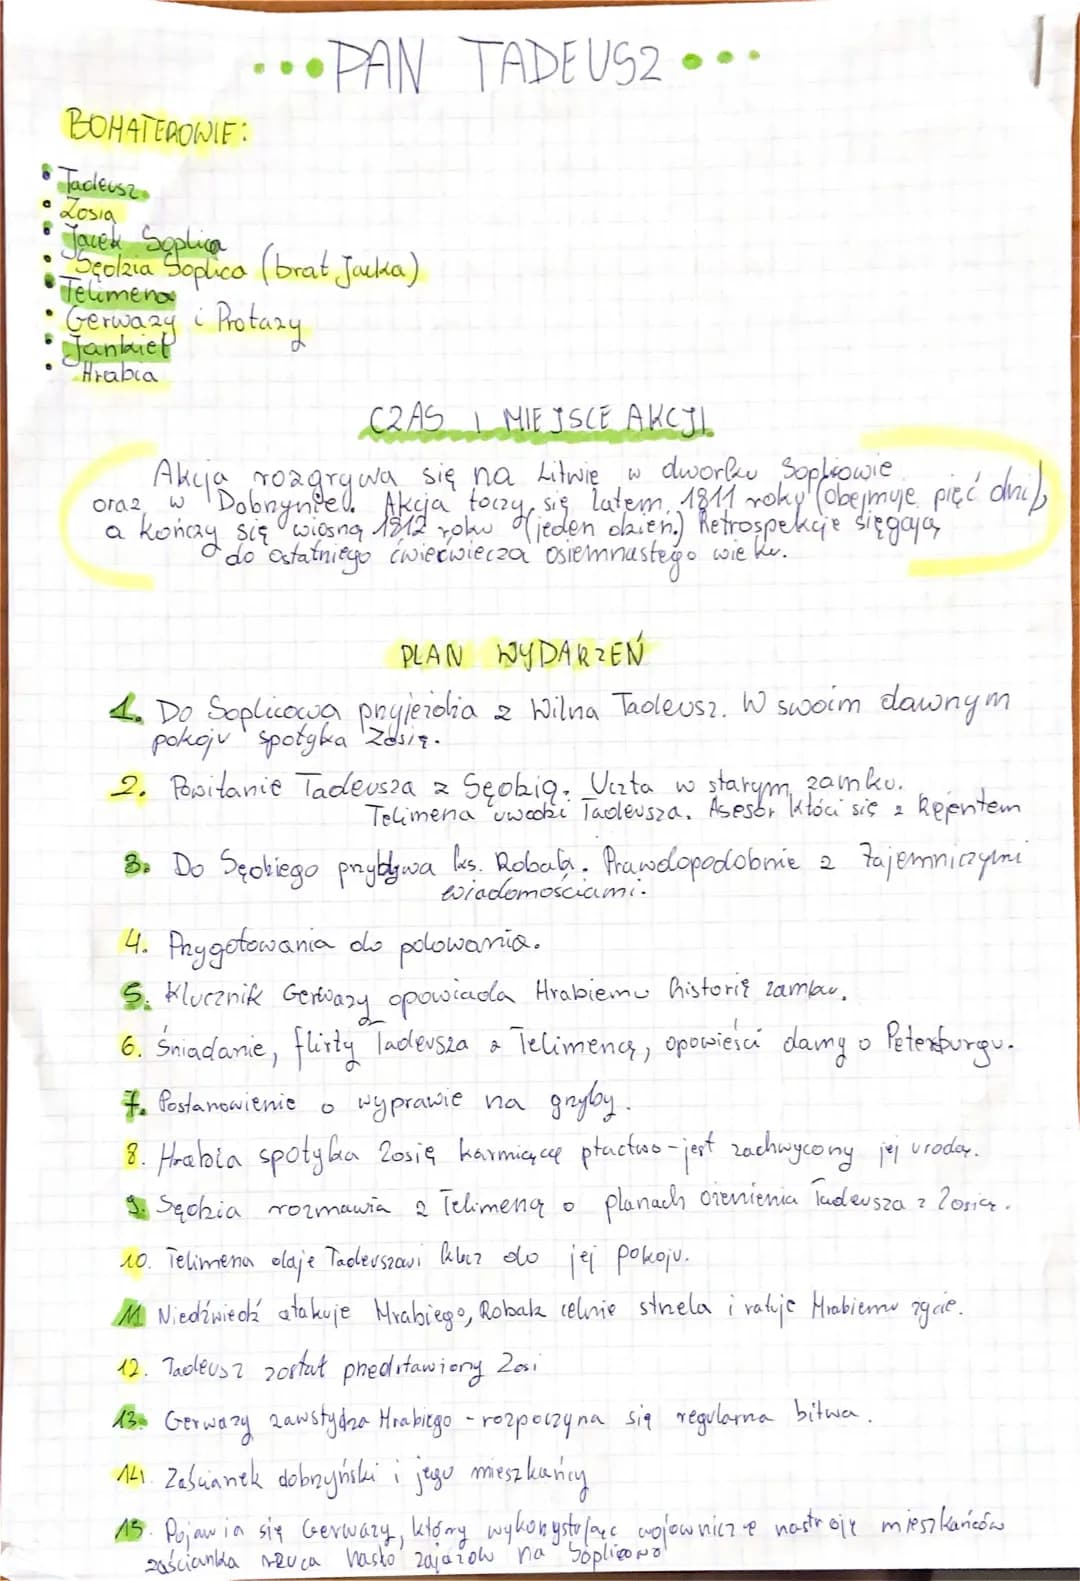 PAN TADEUSZ
BOHATEROWIE:
• Tadeusz
• Zosia
• Jacek Soplica
• Sędzia Soplica (brat Jacka)
• Telimena
• Gerwazy i Protazy
• Jankiel
• Hrabia
CZAS I MIEJSCE AKCJI
Akcja rozgrywa się na Litwie w dworku Soplicowie
oraz w Dobrzyniu. Akcja toczy się latem, 1811 roku (obejmuje pięć dni),
a kończy się wiosną 1812 roku (jeden dzień.) Retrospekcje sięgają
do ostatniego ćwierćwiecza osiemnastego wieku.
PLAN WYDARZEŃ
1. Do Soplicowa przyjeżdża z Wilna Tadeusz. W swoim dawnym
pokoju spotyka Zosię.
2. Powitanie Tadeusza z Sędzią. Uczta w starym zamku.
Telimena uwodzi Tadeusza. Asesor kłóci się z Rejentem
3. Do Sędziego przybywa ks. Robak. Prawdopodobnie z Tajemniczymi
wiadomościami.
4. Przygotowania do polowania.
5. Klucznik Gerwazy opowiada Hrabiemu historię zamku.
6. Śniadanie, flirty Tadeusza z Telimeną, opowieści damy o Petersburgu.
7. Postanowienie o wyprawie na grzyby.
8. Hrabia spotyka Zosię karmiącą ptactwo - jest zachwycony jej urodą.
9. Sędzia rozmawia z Telimeną o planach ożenienia Tadeusza z Zosią.
10. Telimena daje Tadeuszowi klucz do jej pokoju.
11 Niedźwiedź atakuje Hrabiego, Robak celnie strzela i ratuje Hrabiemu życie.
12. Tadeusz został przedstawiony Zosi
13. Gerwazy zawstydza Hrabiego - rozpoczyna się regularna bitwa.
14. Zaścianek dobrzyński i jego mieszkańcy
15. Pojawia się Gerwazy, który wykorzystując wojownicze nastroje mieszkańców
zaścianka rzuca hasło zajazdu na Soplicowo